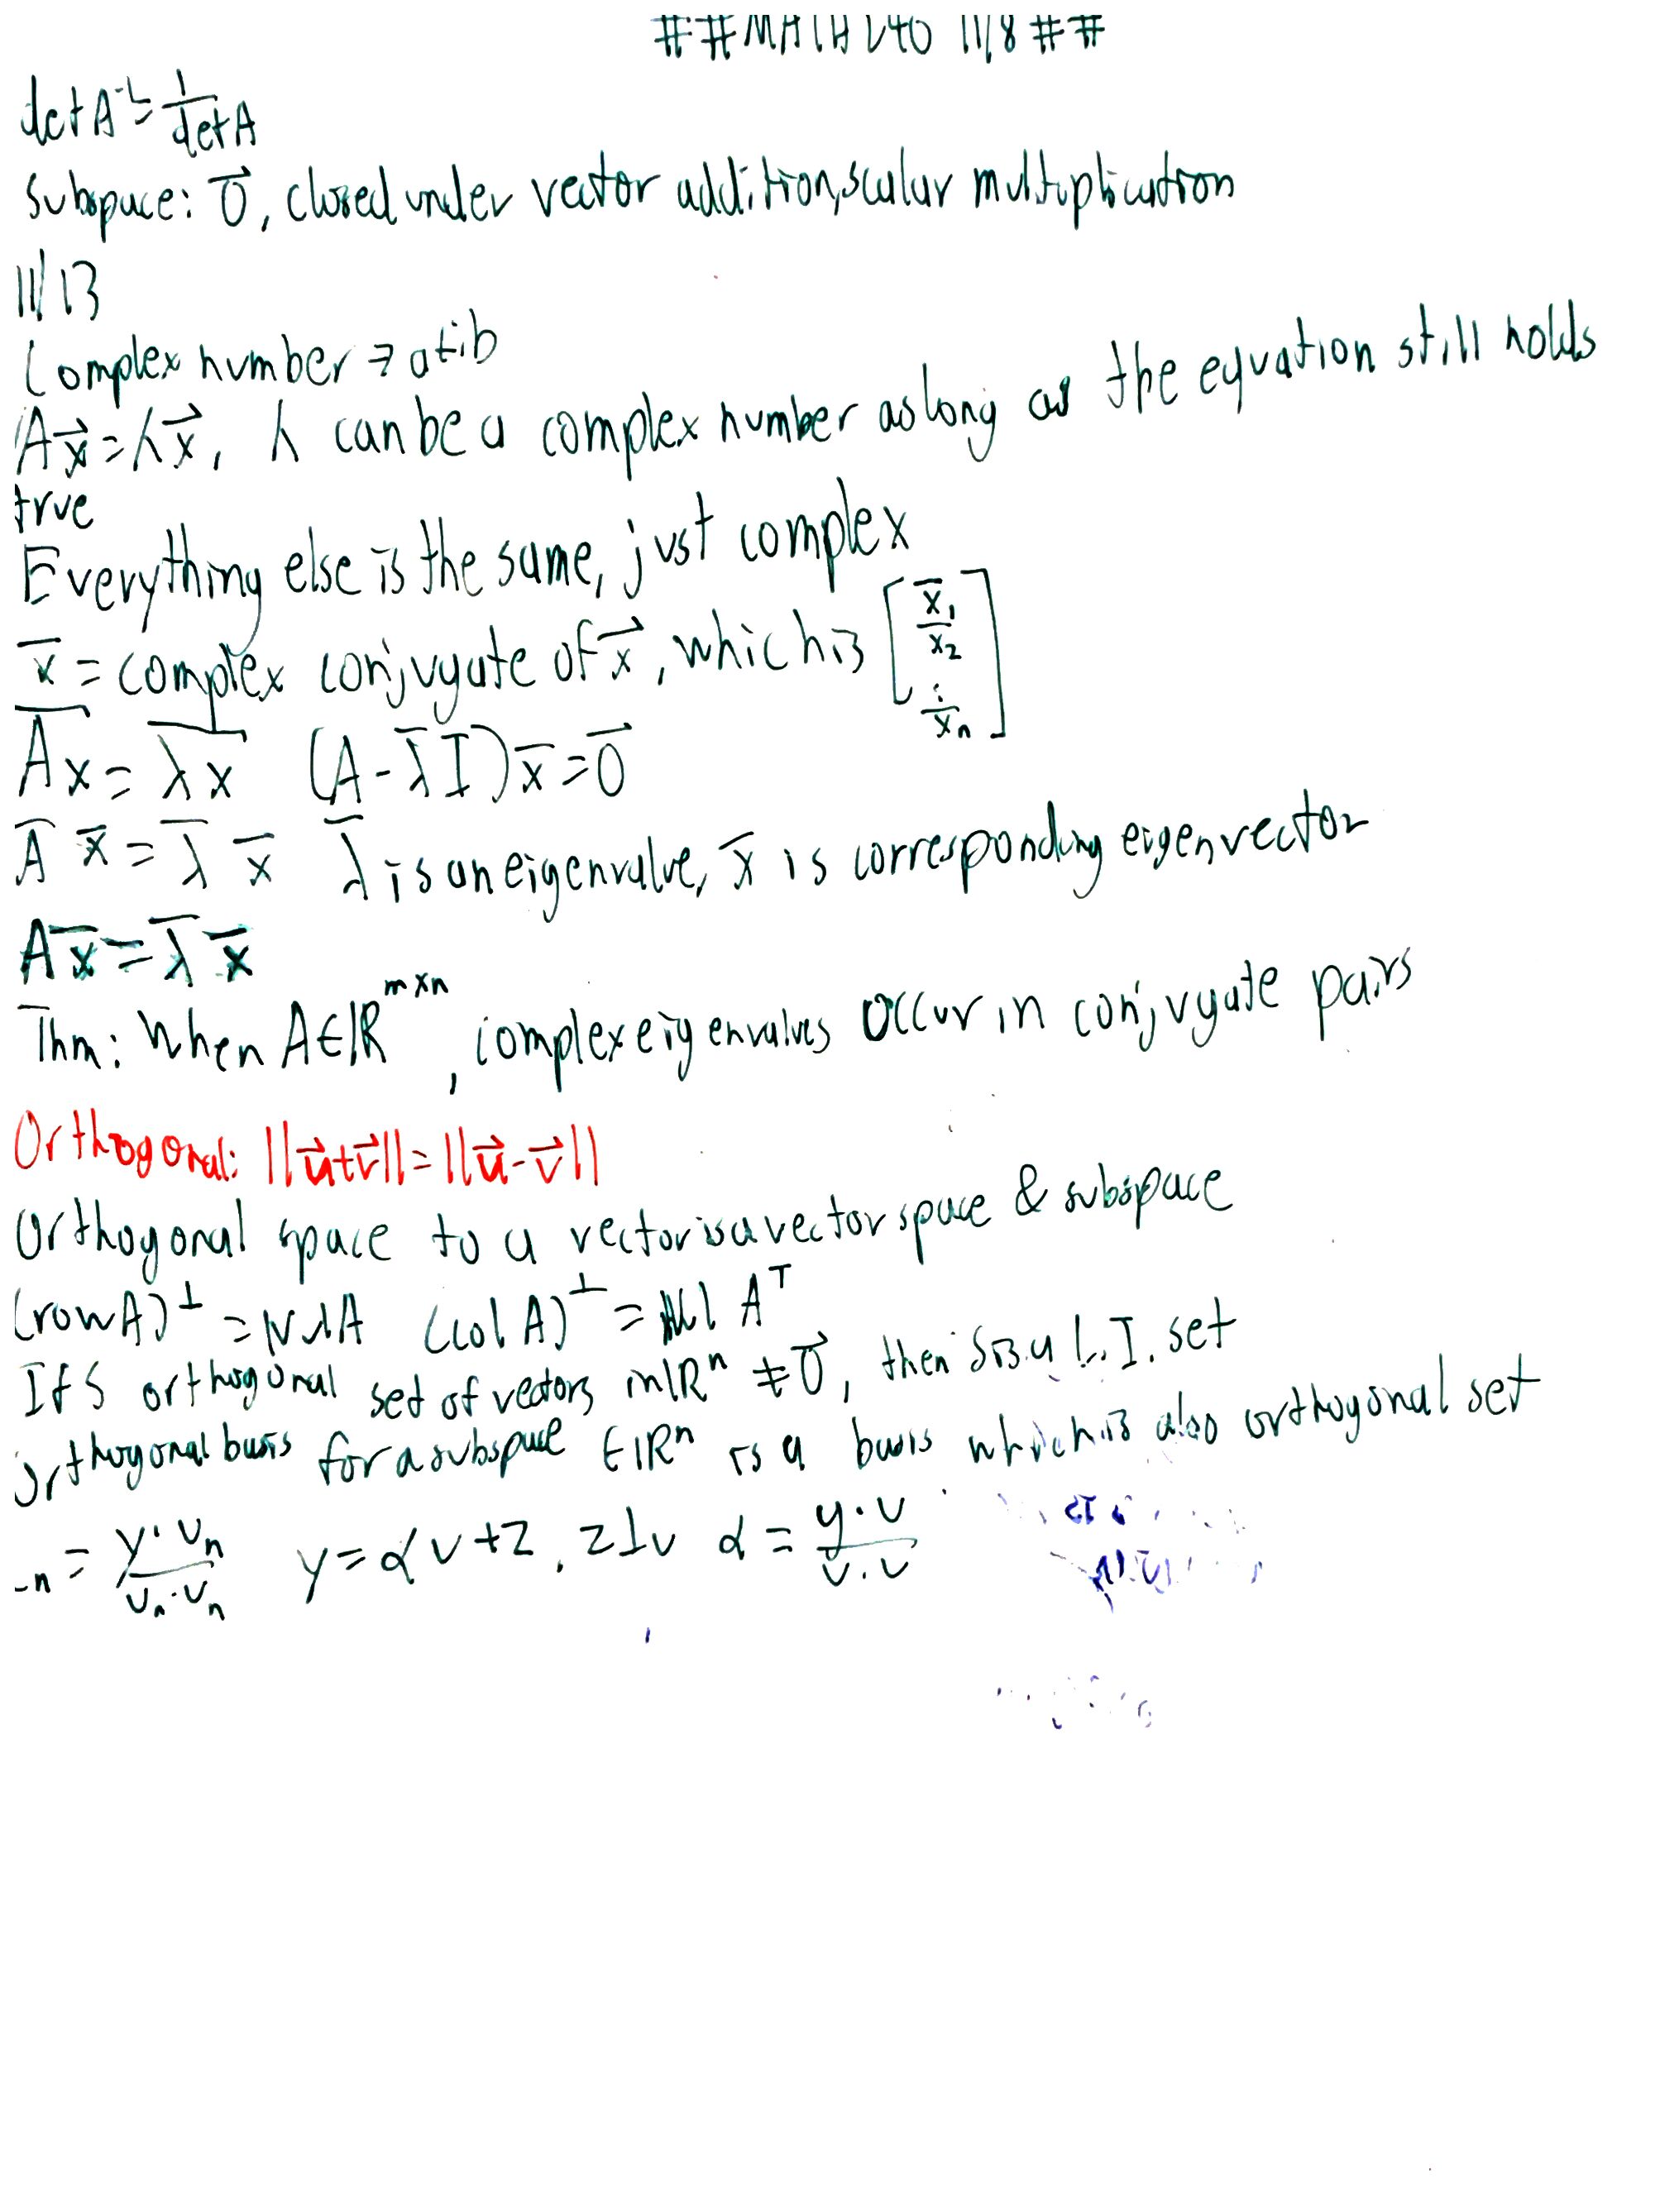 ##MATH 240 11/8##
det A⁻¹ = 1/det A
Subspace: 0⃗, closed under vector addition, scalar multiplication
11/13
Complex number → a+ib
Ax⃗=λx⃗, λ can be a complex number as long as the equation still holds
true
Everything else is the same, just complex
x̅ = complex conjugate of x⃗, which is [x̅₁ x̅₂ ⋮ x̅ₙ]
A̅x̅ = λ̅x̅ (A-λ̅I)x̅=0⃗
A̅ x̅ = λ̅ x̅ λ̅ is an eigenvalue, x̅ is corresponding eigenvector
Ax̅=λ̅x̅
Thm: When A∈ℝᵐˣⁿ, complex eigenvalues occur in conjugate pairs
Orthogonal: ||u⃗+v⃗||=||u⃗-v⃗||
Orthogonal space to a vector is a vector space & subspace
(row A)⊥ = Nul A (Col A)⊥ = Nul Aᵀ
If S orthogonal set of vectors in ℝⁿ ≠0⃗, then S is a L.I. set
orthogonal basis for a subspace ∈ℝⁿ is a basis which is also orthogonal set
n = y·vₙ/vₙ·vₙ y=αv+z, z⊥v α = y·v/v·v